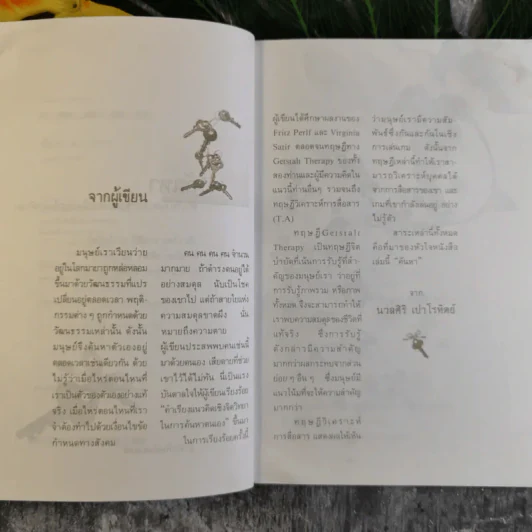 จากผู้เขียน
มนุษย์เราเวียนว่าย
อยู่ในโลกมายาถูกหล่อหลอม
ขึ้นมาด้วยวัฒนธรรมที่แปร
เปลี่ยนอยู่ตลอดเวลา พฤติ-
กรรมต่าง ๆ ถูกกำหนดด้วย
วัฒนธรรมเหล่านั้น ดังนั้น
มนุษย์จึงค้นหาตัวเองอยู่
ตลอดเวลาเช่นเดียวกัน ด้วย
ไม่รู้ว่าเมื่อไหร่ตอนไหนที่
เราเป็นตัวของตัวเองอย่างแท้
จริง เมื่อไหร่ตอนไหนที่เรา
จำต้องทำไปด้วยเงื่อนไขข้อ
กำหนดทางสังคม
คน คน คน คน จำนวน
มากมาย ถ้าดำรงตนอยู่ได้
อย่างสมดุล นับเป็นโชค
ของเขาไป แต่ถ้าสายใยแห่ง
ความสมดุลขาดผึง นั่น
หมายถึงความตาย
ผู้เขียนประสพพบคนเช่นนี้
มาด้วยตนเอง เสียดายที่ช่วย
เขาไว้ได้ไม่ทัน นี่เป็นแรง
บันดาลใจให้ผู้เขียนเรียงร้อย
"คำเรียงแนวคิดเชิงจิตวิทยา
ในการค้นหาตนเอง" ขึ้นมา
ในการเรียงร้อยครั้งนี้
ผู้เขียนได้ศึกษาผลงานของ
Fritz Perlf และ Virginia
Satir ตลอดจนทฤษฎีทาง
Gersuah Therapy ของทั้ง
สองท่านและผู้มีความคิดใน
แนวนี้ท่านอื่นๆ รวมจนถึง
ทฤษฎีวิเคราะห์การสื่อสาร
(T.A)
ทฤษฎี Gersral:
Therapy เป็นทฤษฎีจิต
บำบัดที่เน้นการรับรู้ที่สำ
คัญของมนุษย์เรา ว่าอยู่ที่
การรับรู้ภาพรวม หรือภาพ
ทั้งหมด จึงจะสามารถทำให้
เราพบความสมดุลของชีวิตที่
แท้จริง ซึ่งการรับรู้
ดังกล่าวมีความสำคัญ
มากกว่าผลกระทบจากส่วน
ย่อย ๆ อื่น ๆ ซึ่งมนุษย์มี
แนวโน้มที่จะให้ความสำคัญ
มากกว่า
ทฤษฎีวิเคราะห์
การสื่อสาร แสดงผลให้เห็น
ว่ามนุษย์เรามีความสัม
พันธ์ซึ่งกันและกันในเชิง
การเล่นเกม ดังนั้นจาก
ทฤษฎีเหล่านี้ทำให้เราสา-
มารถวิเคราะห์บุคคลได้
จากการสื่อสารของเขา และ
เกมที่เขากำลังเล่นอยู่ อย่าง
ไม่รู้ตัว
สาระเหล่านี้ทั้งหมด
คือที่มาของหัวใจหนังสือ
เล่มนี้ "ค้นหา"
จาก
นวลศิริ เปาโรหิตย์